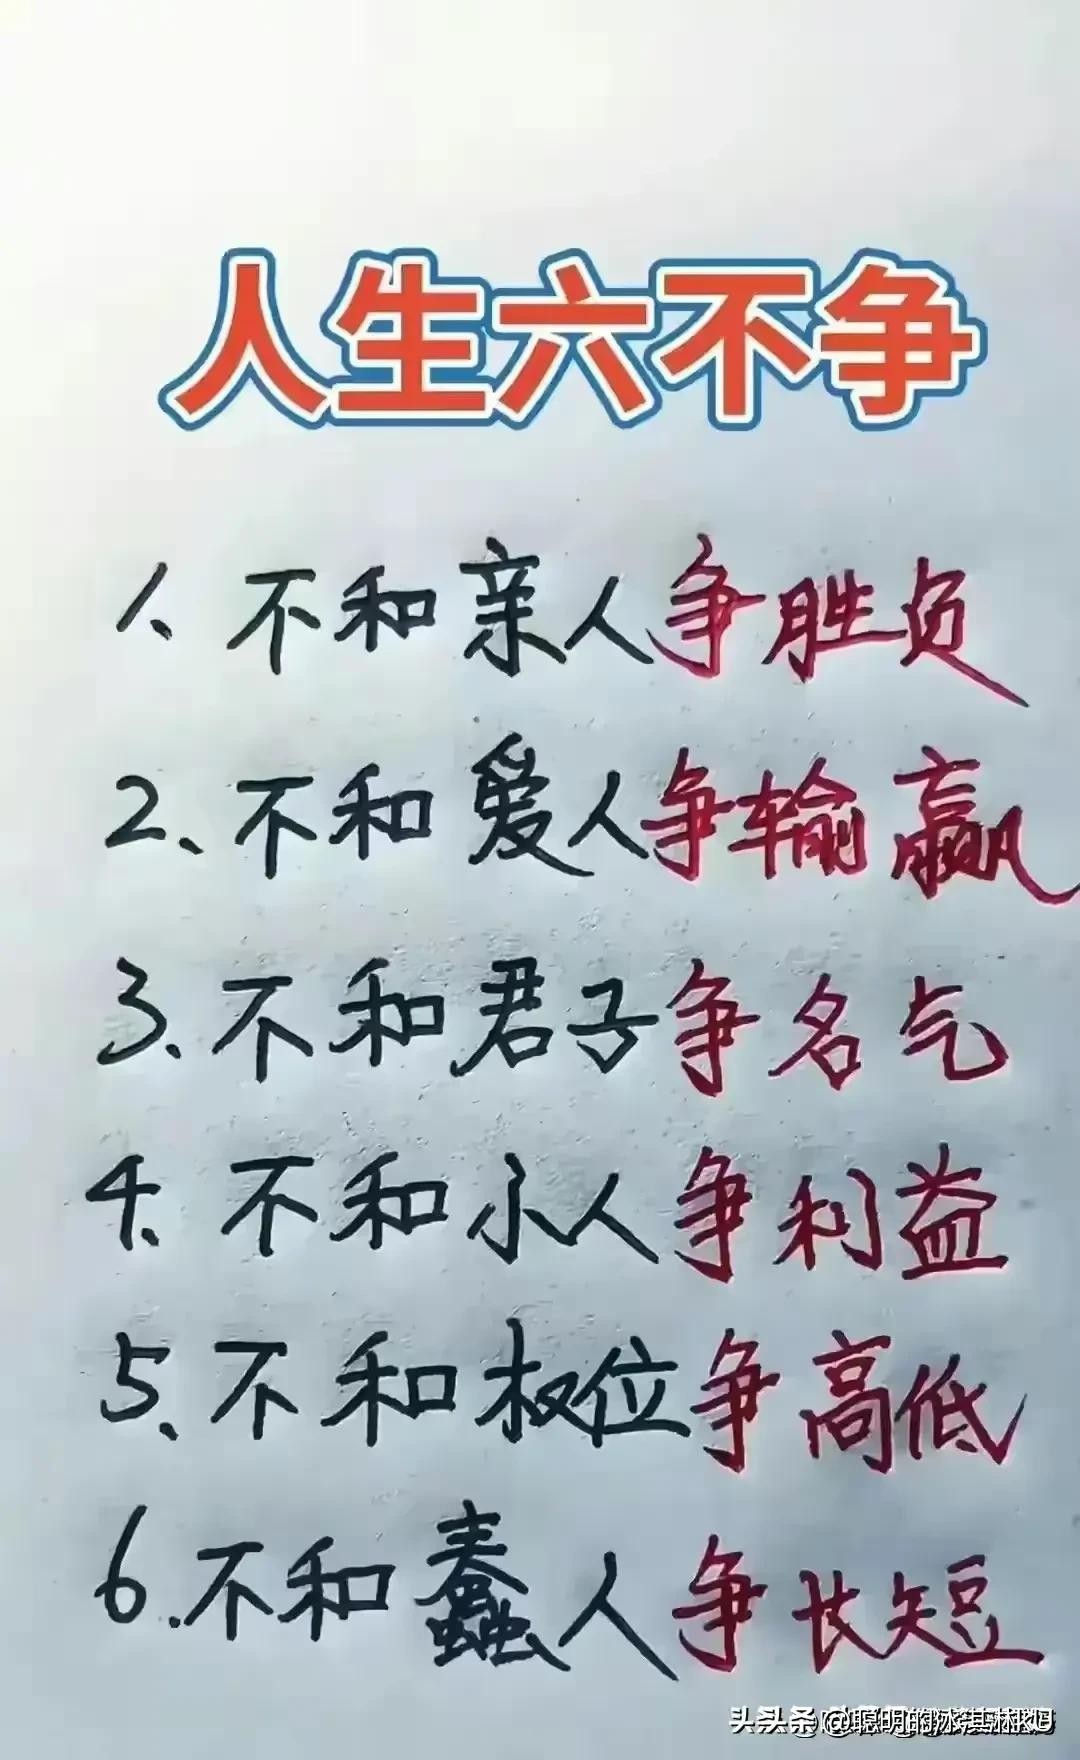 人生六不争
1、不和亲人争胜负
2、不和爱人争输赢
3、不和君子争名气
4、不和小人争利益
5、不和权位争高低
6、不和蠢人争长短
头条